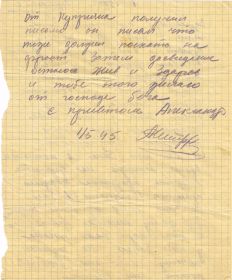 От Куприяна получил
письмо он писал что
тоже должен поехать на
фронт. Затем досвидание
остаюсь жив и здоров
и тебе того желаю
от господа бога
с приветом Александр
1/5 45